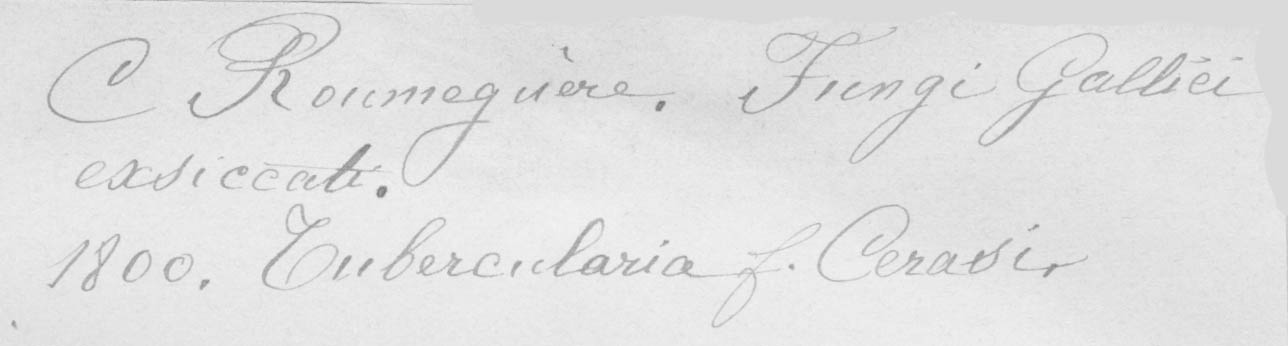 C Roumeguère. Fungi Gallici
exsiccati.
1800. Tubercularia f. Cerasi.